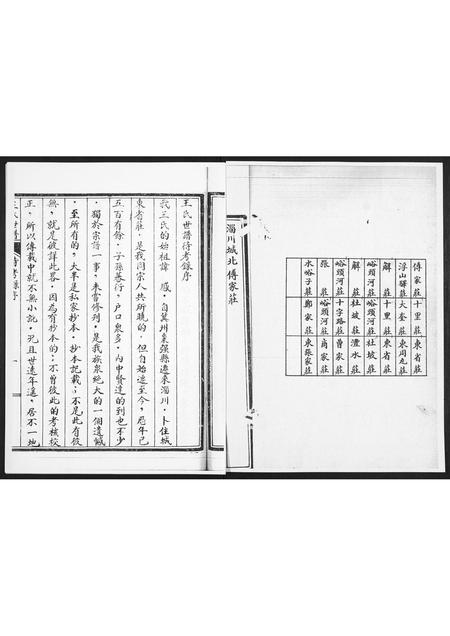 傅家莊 十里莊 東省莊
浮山驛莊 大奎莊
解莊 十里莊 東省莊
峪頭河莊 峪頭河莊 杜坡莊
解莊 杜坡莊 澧水莊
峪頭河莊 十字路莊 曹家莊
張莊 峪頭河莊 莊
水峪子莊 鄭家莊 東張家莊
淄川城北傅家莊
王氏世譜待考錄序
我王氏的始祖諱感·自冀州棗强縣遷來淄川·卜住城
東省莊·是我同宗人共所曉的·但自始遷至今·歷年已
五百有餘·子孫蕃衍·户口衆多·内中賢達的到也不少
·獨於宗譜一事·未嘗修列·是我族衆絶大的一個遺憾
·至所有的·大半是私家抄本·抄本記載·不是此有彼
無·就是彼詳此畧·因為有抄本的·不曾彼此的考核校
正·所以傳載中就不無小訛·况且世遠年遥·居不一地
王氏世譜 待考錄序 一